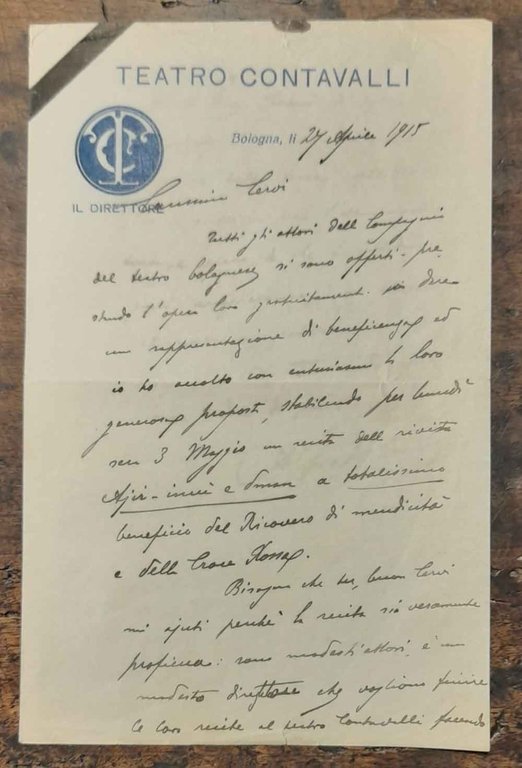 TEATRO CONTAVALLI
Bologna, li 27 Aprile 1915
IL DIRETTORE
Cervi
Tutti gli attori della Compagnia
del teatro bolognese si sono offerti - pre
stando l'opera loro gratuitamente per dare
una rappresentazione di beneficenza ed
io ho accolto con entusiasmo la loro
generosa proposta, stabilendo per lunedì
sera 3 Maggio una recita della rivista
Ajir - incù e dman a totalissimo
beneficio del Ricovero di mendicità
e della Croce Rossa.
Bisogna che lei, buon Cervi
mi ajuti perchè la recita sia veramente
proficua: sono modesti attori, è un
modesto direttore che vogliono finire
le loro recite al teatro Contavalli facendo